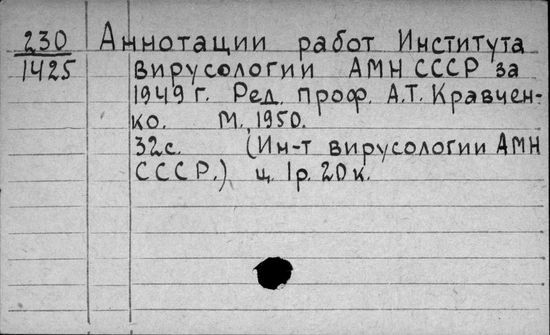 230 Аннотации работ Института
1425 Вирусологии АМН СССР за
1949 г. Ред. проф. А.Т. Кравчен-
ко. М., 1950.
32с. (Ин-т вирусологии АМН
СССР.) ц. 1р. 20к.